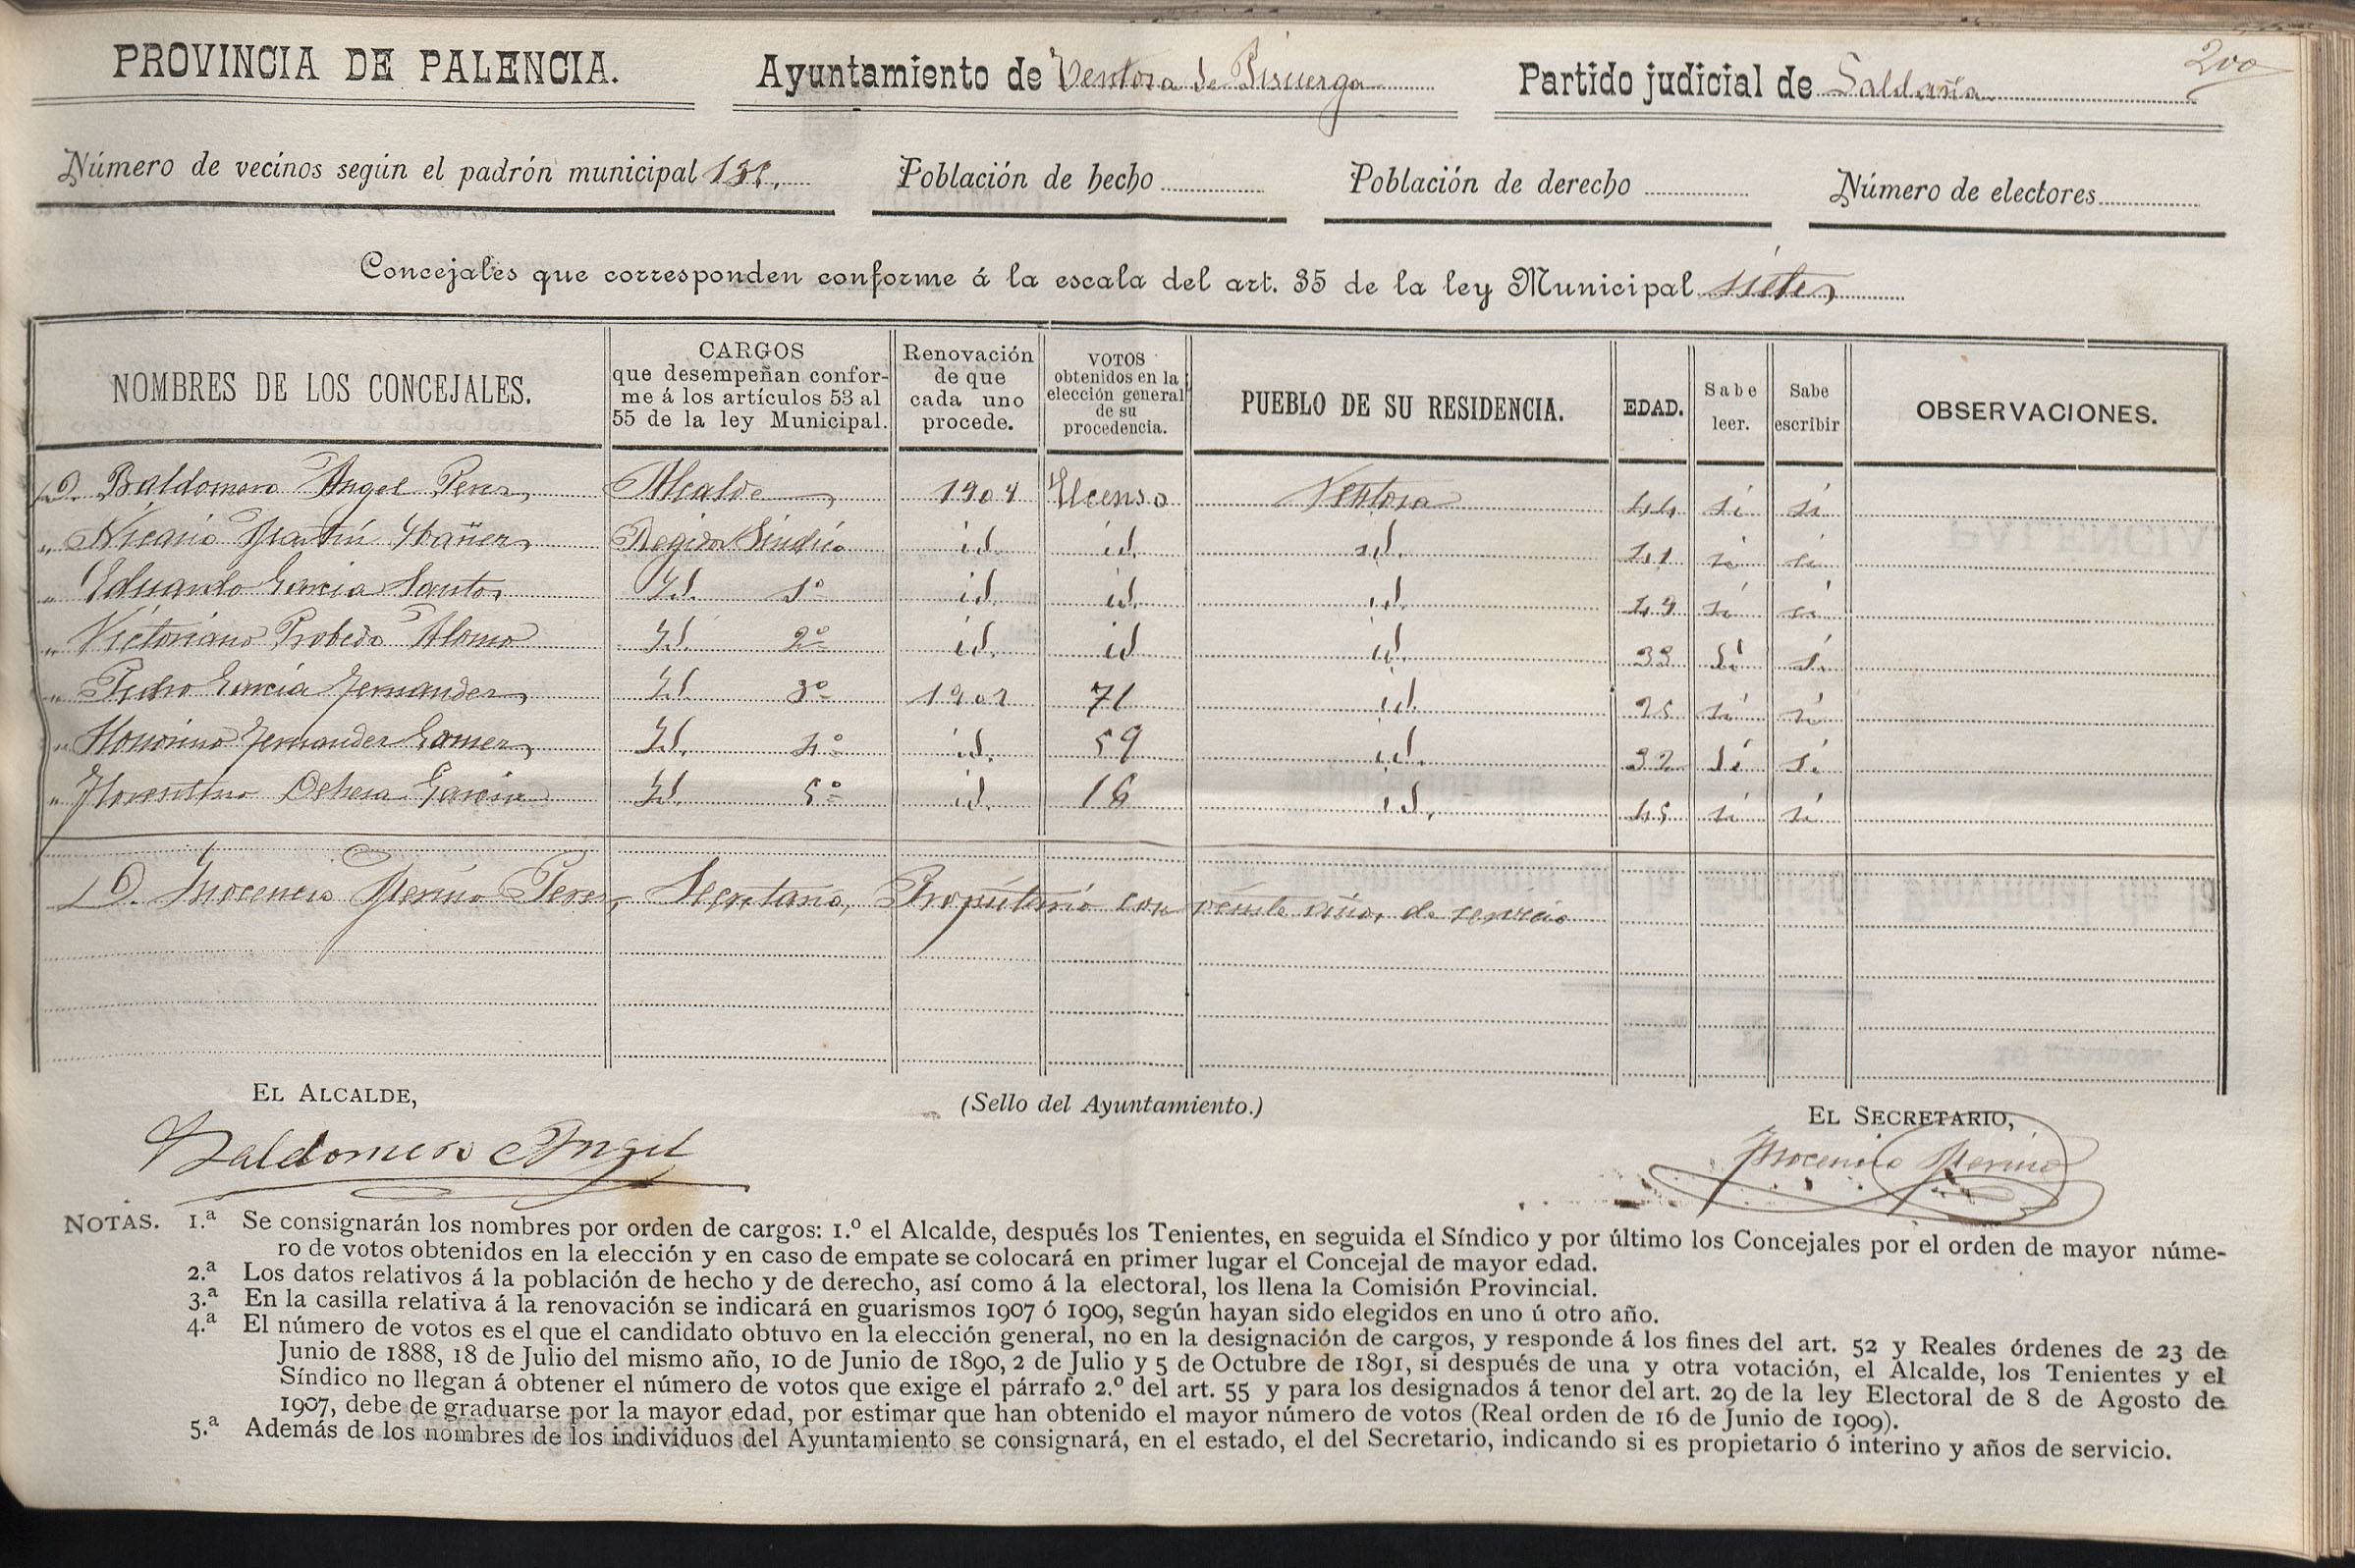 200
PROVINCIA DE PALENCIA. Ayuntamiento de Ventosa de Pisuerga Partido judicial de Saldaña
Número de vecinos según el padrón municipal Población de hecho Población de derecho Número de electores
Concejales que corresponden conforme á la escala del art. 35 de la ley Municipal siete
NOMBRES DE LOS CONCEJALES. CARGOS que desempeñan confor- me á los artículos 53 al 55 de la ley Municipal. Renovación de que cada uno procede. VOTOS obtenidos en la elección general de su procedencia. PUEBLO DE SU RESIDENCIA. EDAD. Sabe leer. Sabe escribir OBSERVACIONES.
D. Baldomero Angel Perez Alcalde 1909 Ventosa 44 si si
" Nicasio Martin Ybañez Regidor Sindico id. id. id. 41 si si
" Eduardo Garcia Santos Id. 1º id. id. id. 49 si si
" Victoriano Alonso Id. 2º id. id id. 33 si si
" Pedro Garcia Fernandez Id. 3º 71 id. 25 si si
" Honorino Fernandez Gomez Id. 4º id. 59 id. 32 si si
" Florentino Dehesa Garcia Id. 5º id. 16 id. 45 si si
D. Inocencio Merino Perez, Secretario, Propietario con veinte años de servicio
EL ALCALDE, (Sello del Ayuntamiento.) EL SECRETARIO,
Baldomero Angel Inocencio Merino
NOTAS. 1.ª Se consignarán los nombres por orden de cargos: 1.º el Alcalde, después los Tenientes, en seguida el Síndico y por último los Concejales por el orden de mayor núme-
ro de votos obtenidos en la elección y en caso de empate se colocará en primer lugar el Concejal de mayor edad.
2.ª Los datos relativos á la población de hecho y de derecho, así como á la electoral, los llena la Comisión Provincial.
3.ª En la casilla relativa á la renovación se indicará en guarismos 1907 ó 1909, según hayan sido elegidos en uno ú otro año.
4.ª El número de votos es el que el candidato obtuvo en la elección general, no en la designación de cargos, y responde á los fines del art. 52 y Reales órdenes de 23 de
Junio de 1888, 18 de Julio del mismo año, 10 de Junio de 1890, 2 de Julio y 5 de Octubre de 1891, si después de una y otra votación, el Alcalde, los Tenientes y el
Síndico no llegan á obtener el número de votos que exige el párrafo 2.º del art. 55 y para los designados á tenor del art. 29 de la ley Electoral de 8 de Agosto de
1907, debe de graduarse por la mayor edad, por estimar que han obtenido el mayor número de votos (Real orden de 16 de Junio de 1909).
5.ª Además de los nombres de los individuos del Ayuntamiento se consignará, en el estado, el del Secretario, indicando si es propietario ó interino y años de servicio.